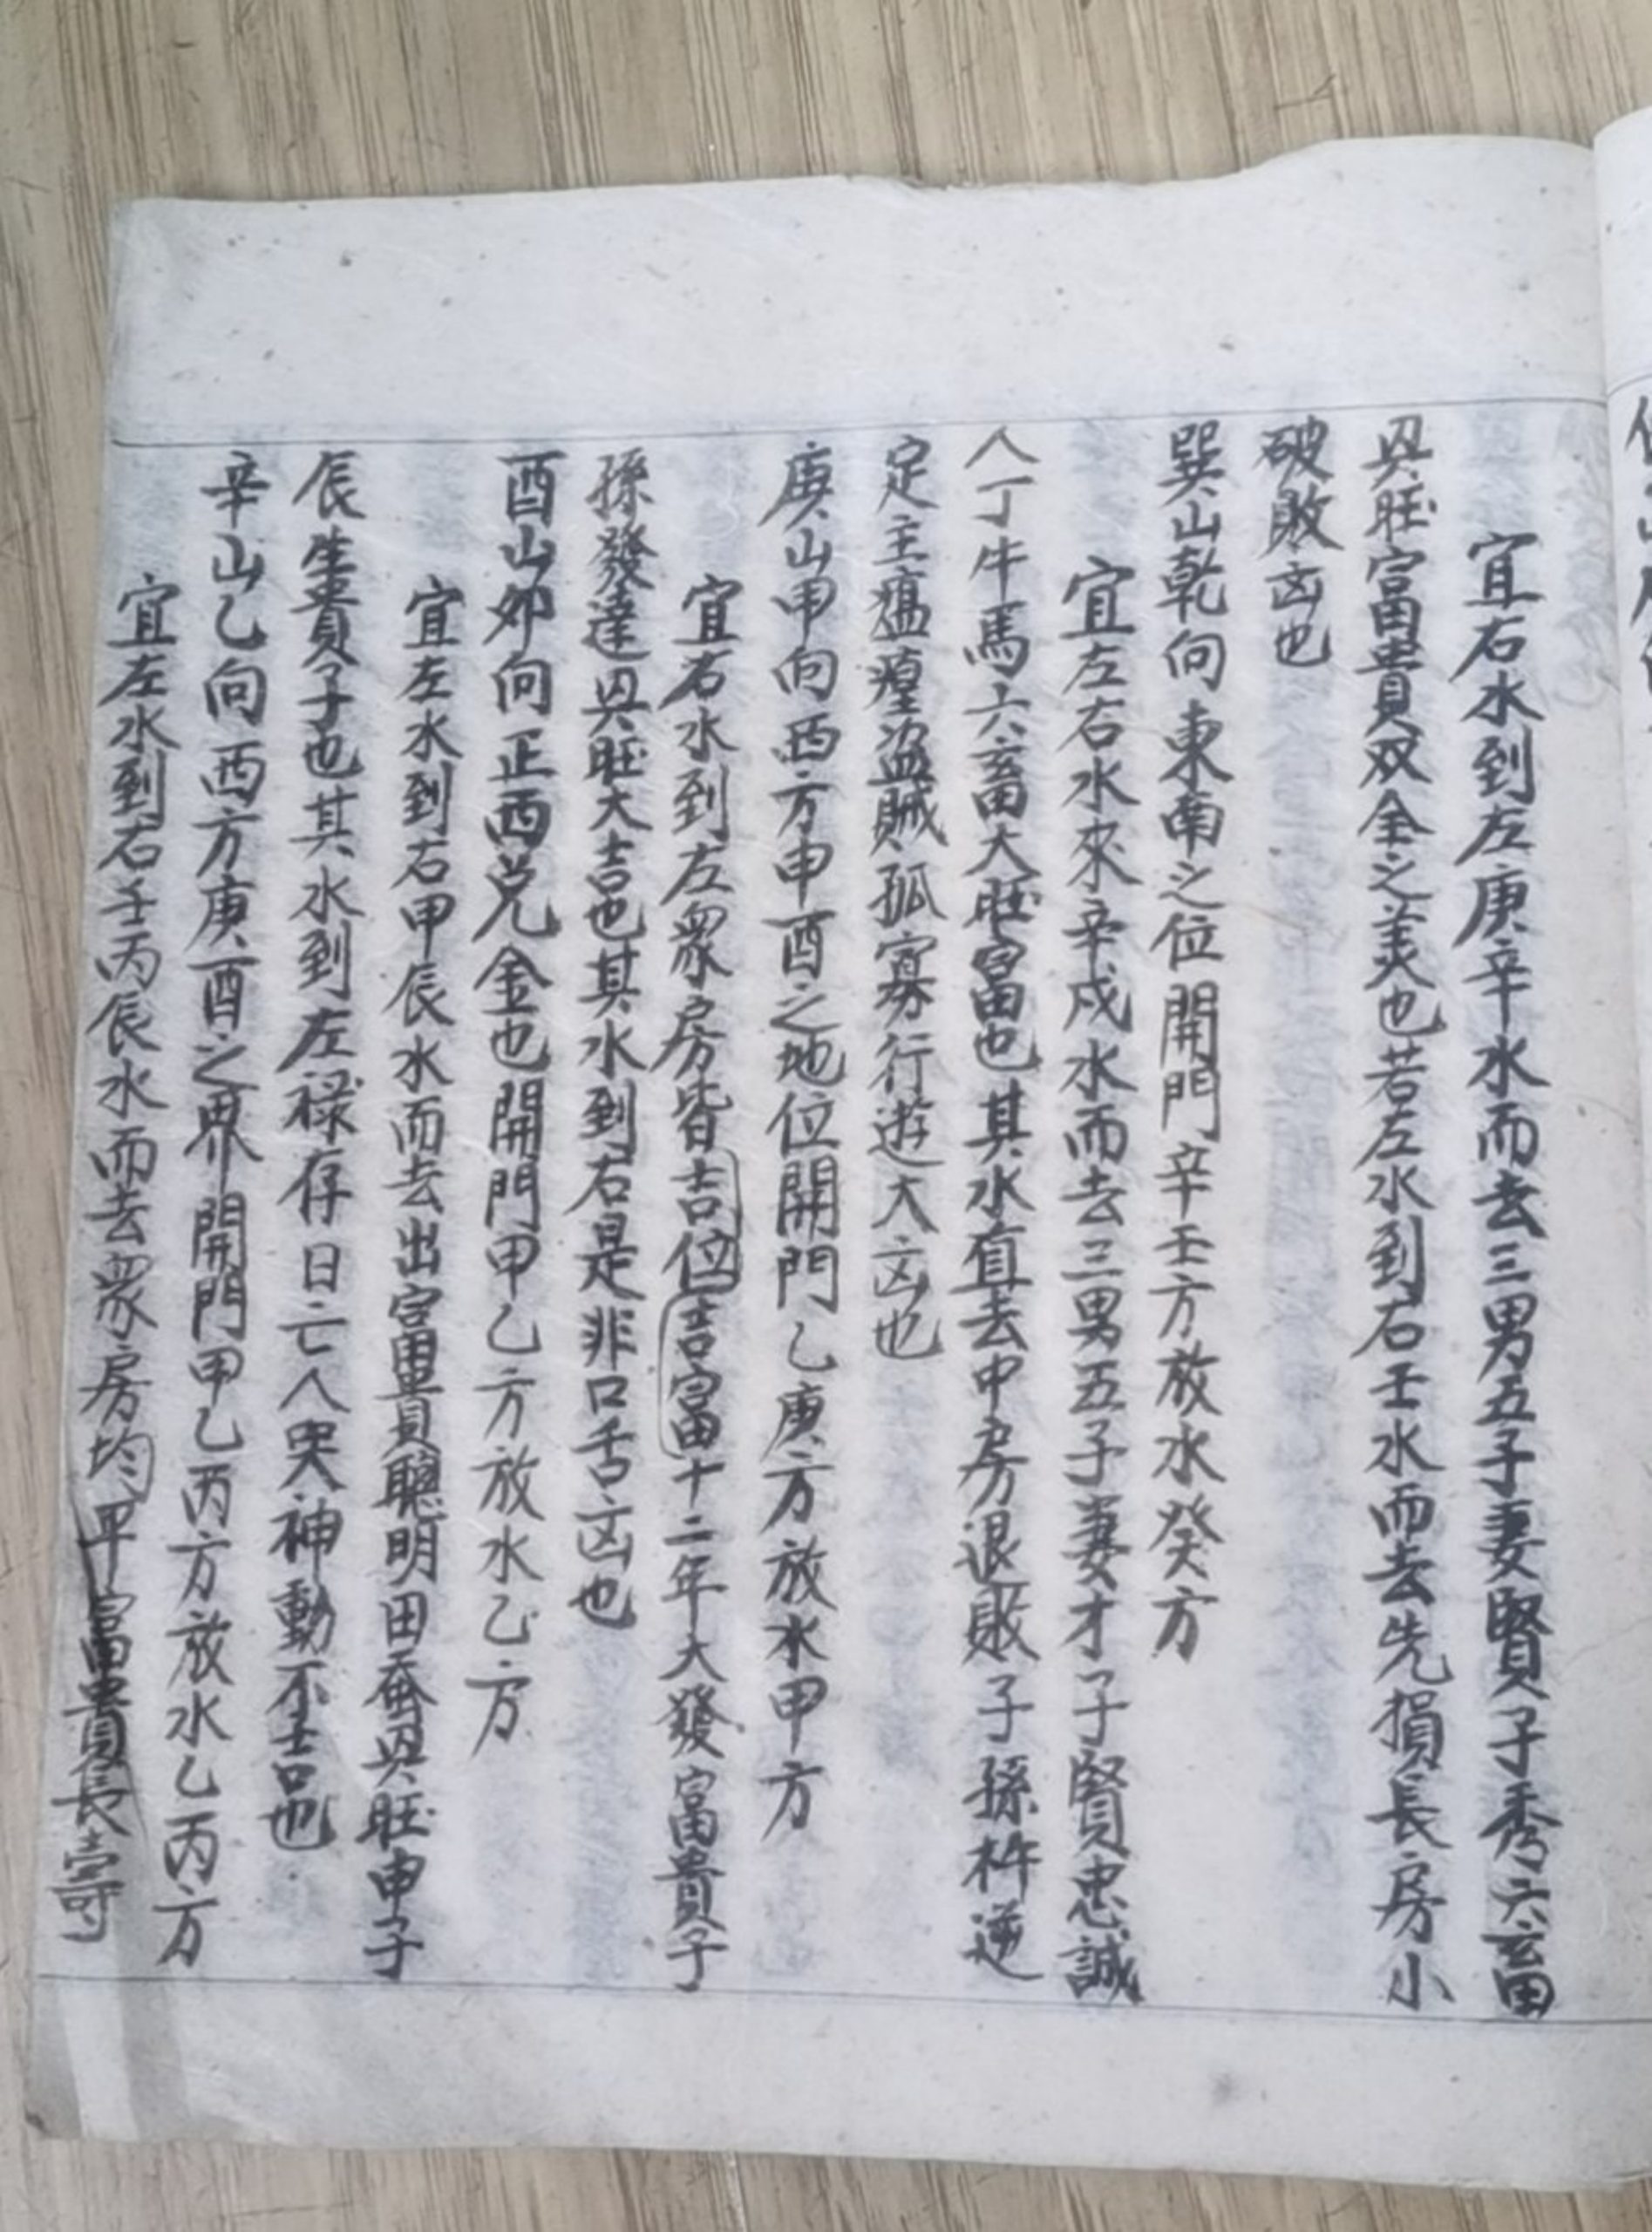 宜右水到左庚辛水而去三男五子妻賢子秀六畜
興旺富貴双全之美也若左水到右壬水而去先損長房小
破敗凶也
巽山乾向東南之位開門辛壬方放水癸方
宜左右水來辛戍水而去三男五子妻才子賢忠誠
人丁牛馬六畜大旺富也其水直去中房退敗子孫忤逆
定主瘟瘴盜賊孤寡行遊大凶也
庚山甲向西方申酉之地位開門乙庚方放水甲方
宜右水到左衆房皆吉位吉富十二年大發富貴子
孫發達興旺大吉也其水到右是非口舌凶也
酉山卯向正西兌金也開門甲乙方放水乙方
宜左水到右甲辰水而去出富貴聰明田蚕興旺申子
辰生貴子也其水到左祿存日亡人哭神動不吉也
辛山乙向西方庚酉之界開門甲乙丙方放水乙丙方
宜左水到右壬丙辰水而去衆房均平富貴長壽